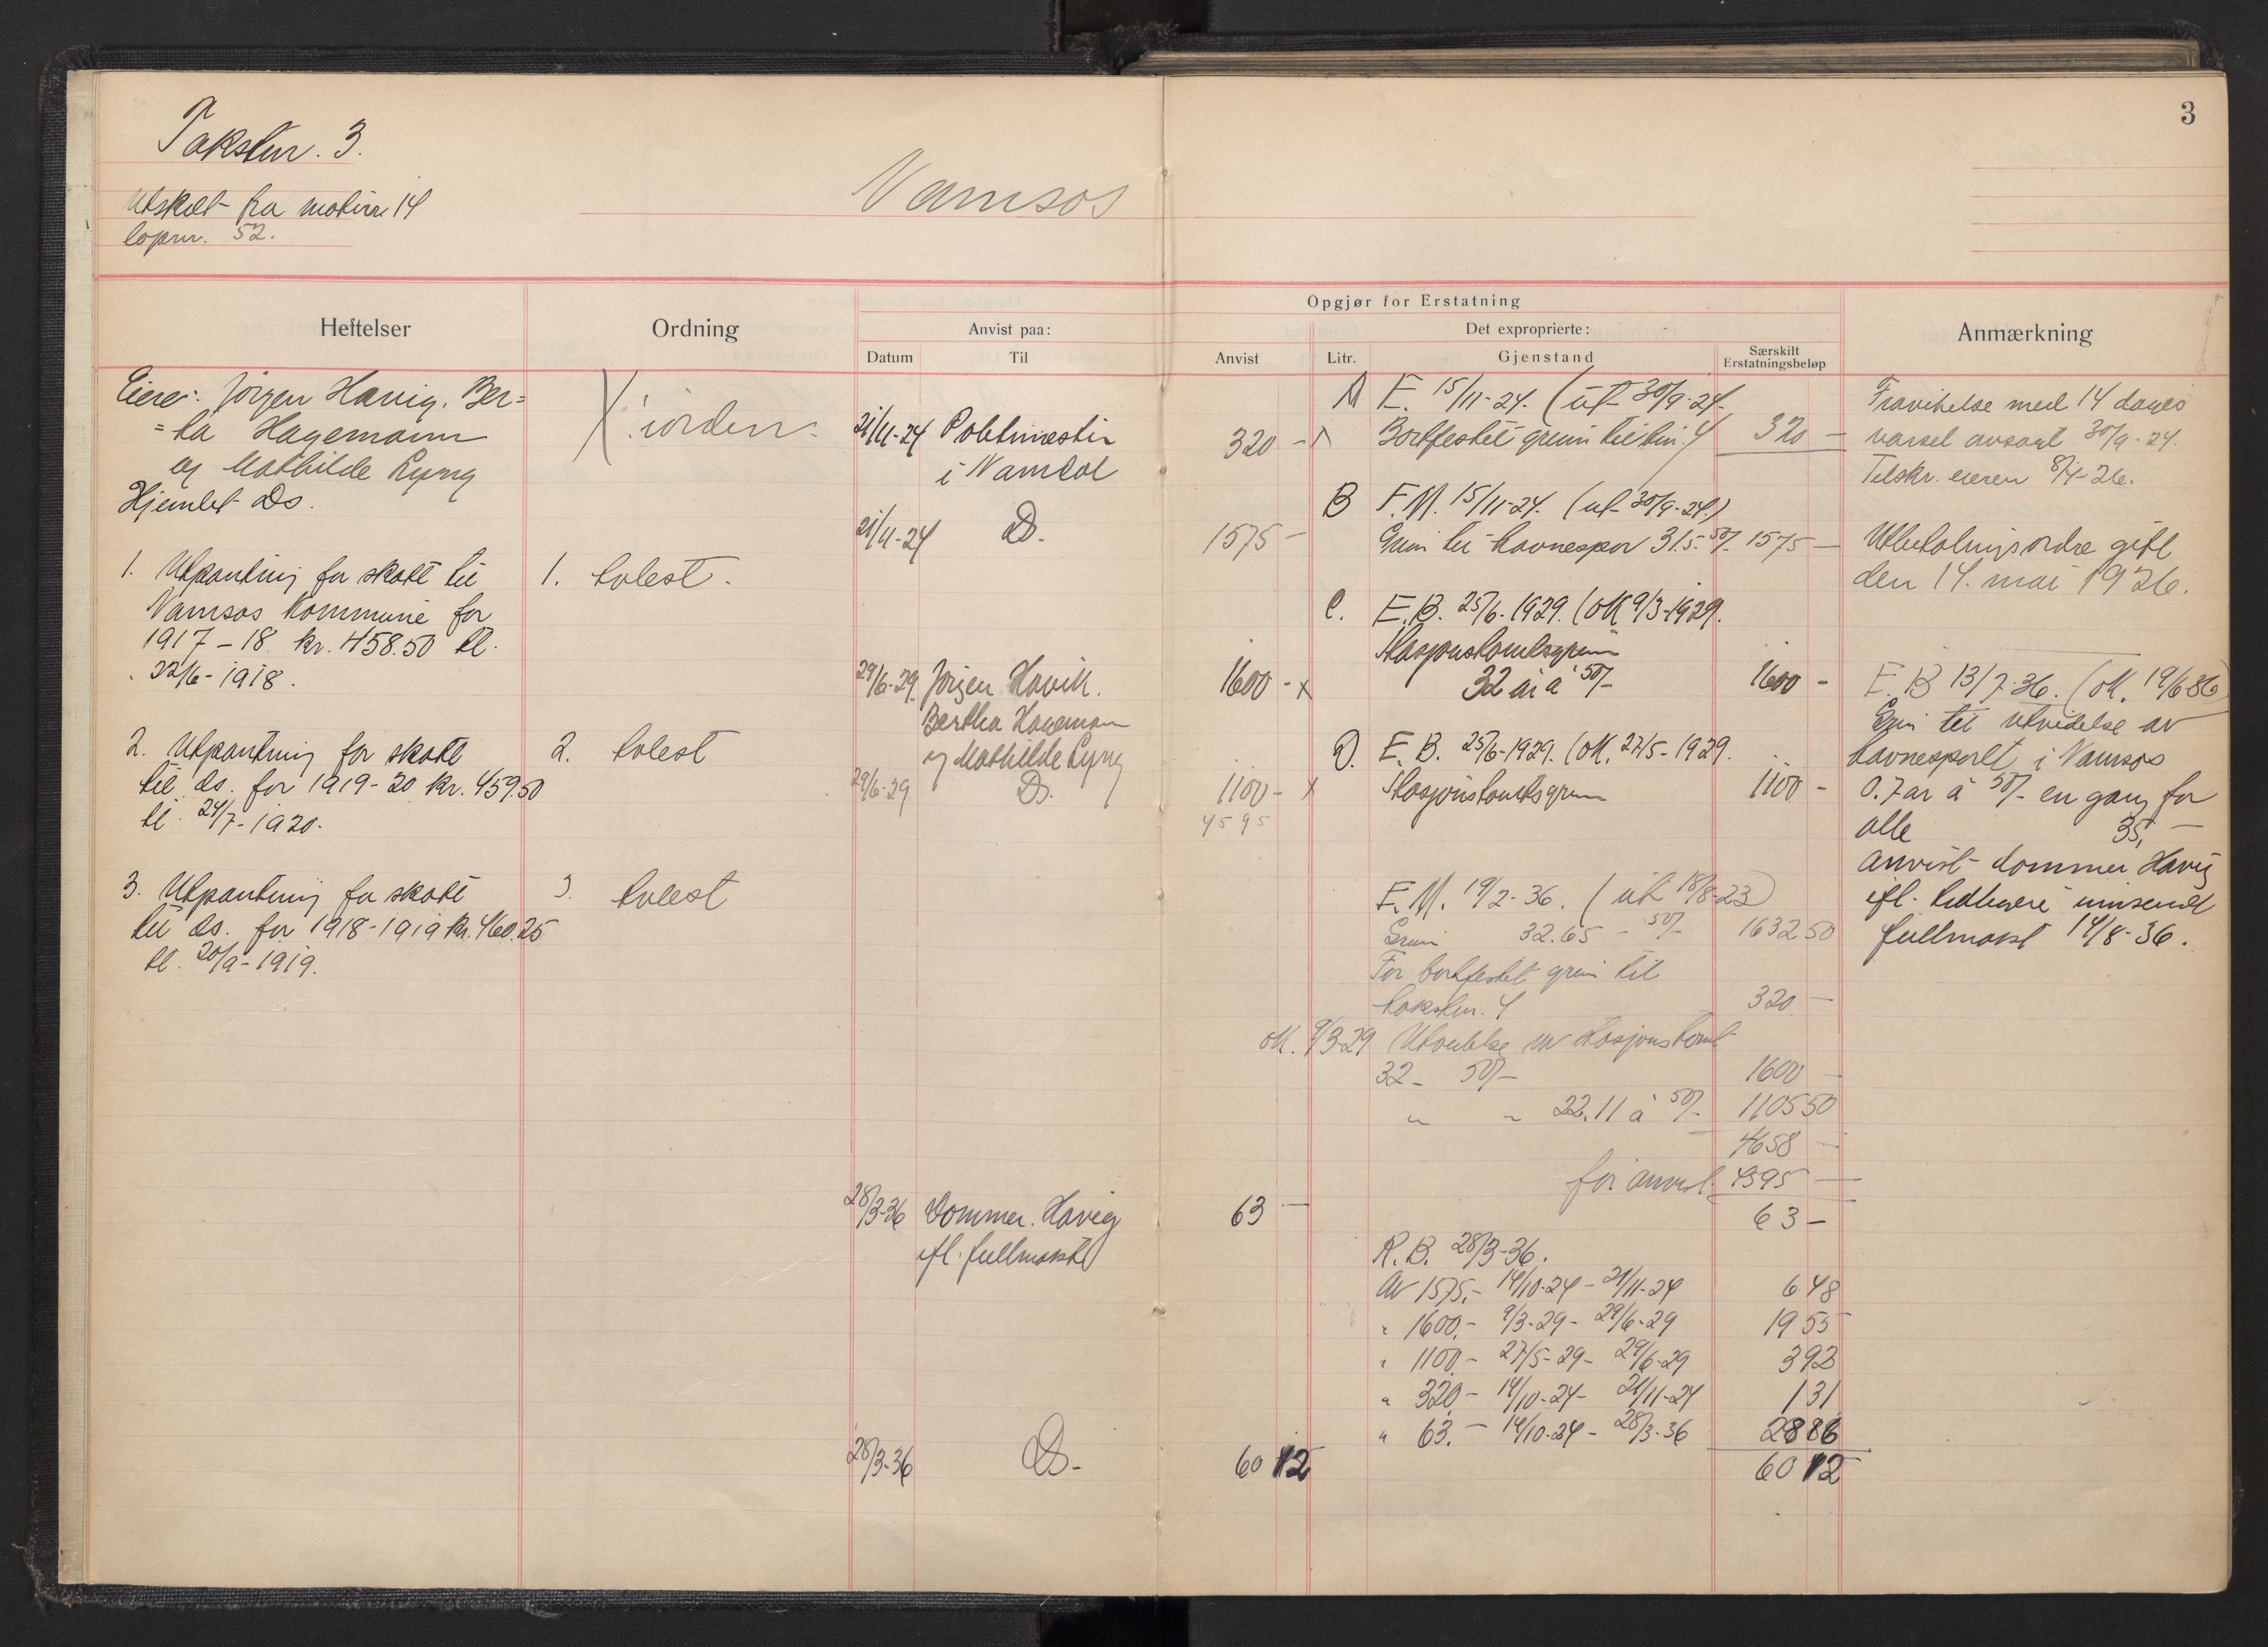 3
Takstnr. 3.
Utskilt fra matrnr 14
lopnr. 52.
Namsos
Heftelser
Ordning
Opgjør for Erstatning
Anvist paa:
Datum
Til
Anvist
Det exproprierte:
Litr.
Gjenstand
Særskilt
Erstatningsbeløp
Anmærkning
Eiere: Jörgen Havig, Ber=
=ta Hagemann
og Mathilde Lyng
Hjemlet Do.
1. Utpantning for skatt til
Namsos kommune for
1917-18 kr. 458.50 tl.
22/6-1918.
2. Utpantning for skatt
til do. for 1919-20 kr. 459.50
tl. 24/7-1920.
3. Utpantning for skatt
til do. for 1918-1919 kr. 460.25
tl. 20/9-1919.
X iorden.
1. tvlest.
2. tvlest
3. tvlest
21/11-24 Politimester
i Namdal
320 -
21/11-24 Do.
1575 -
29/6-29 Jörgen Havik.
Bertha Hageman
og Mathilde Lyng
1600 - x
29/6-29 Do.
1100 - x
4595
28/3-36 Dommer. Havig
ifl. fullmakt
63 -
28/3-36 Do.
60 12
A E. 15/11-24. (ut 30/9-24.
Bortfestet grunn til tnr. 4 320 -
B F.M. 15/11-24. (ut 30/9-24.)
Grunn til havnespor 31.5. 50/- 1575 -
C. E.B. 25/6-1929. (OK 9/3-1929.
Stasjonstomtsgrunn
32 ar à 50/- 1600 -
D. E.B. 25/6-1929. (OK. 27/5-1929.
Stasjonstomtsgrunn 1100 -
F.M. 19/2-36. (ut 18/8-23)
Grunn 32.65 - 50/- 1632 50
For bortfestet grunn til
takstnr. 4 320. -
OK. 9/3-29 Utvidelse av stasjonstomt
32 - 50/- 1600 -
" " 22.11 à 50/- 1105 50
4658 -
før anvist 4595 -
63 -
R.B. 28/3-36.
Av 1575.- 14/10-24 - 21/11-24 6 48
" 1600.- 9/3-29 - 29/6-29 19 55
" 1100.- 27/5-29 - 29/6-29 3 92
" 320.- 14/10-24 - 21/11-24 1 31
" 63.- 14/10-24 - 28/3-36 28 86
60 12
Fravikelse med 14 dages
varsel avsant 30/9-24.
Tilskr. eieren 8/4-26.
Utbetalingsordre gitt
den 14. mai 1926.
E.B 13/7-36. (OK. 19/6 36)
Grunn til utvidelse av
havnesporet i Namsos
0.7 ar à 50/- en gang for
alle 35, -
Anvist dommer Havig
ifl. tidligere innsendt
fullmakt 14/8-36.